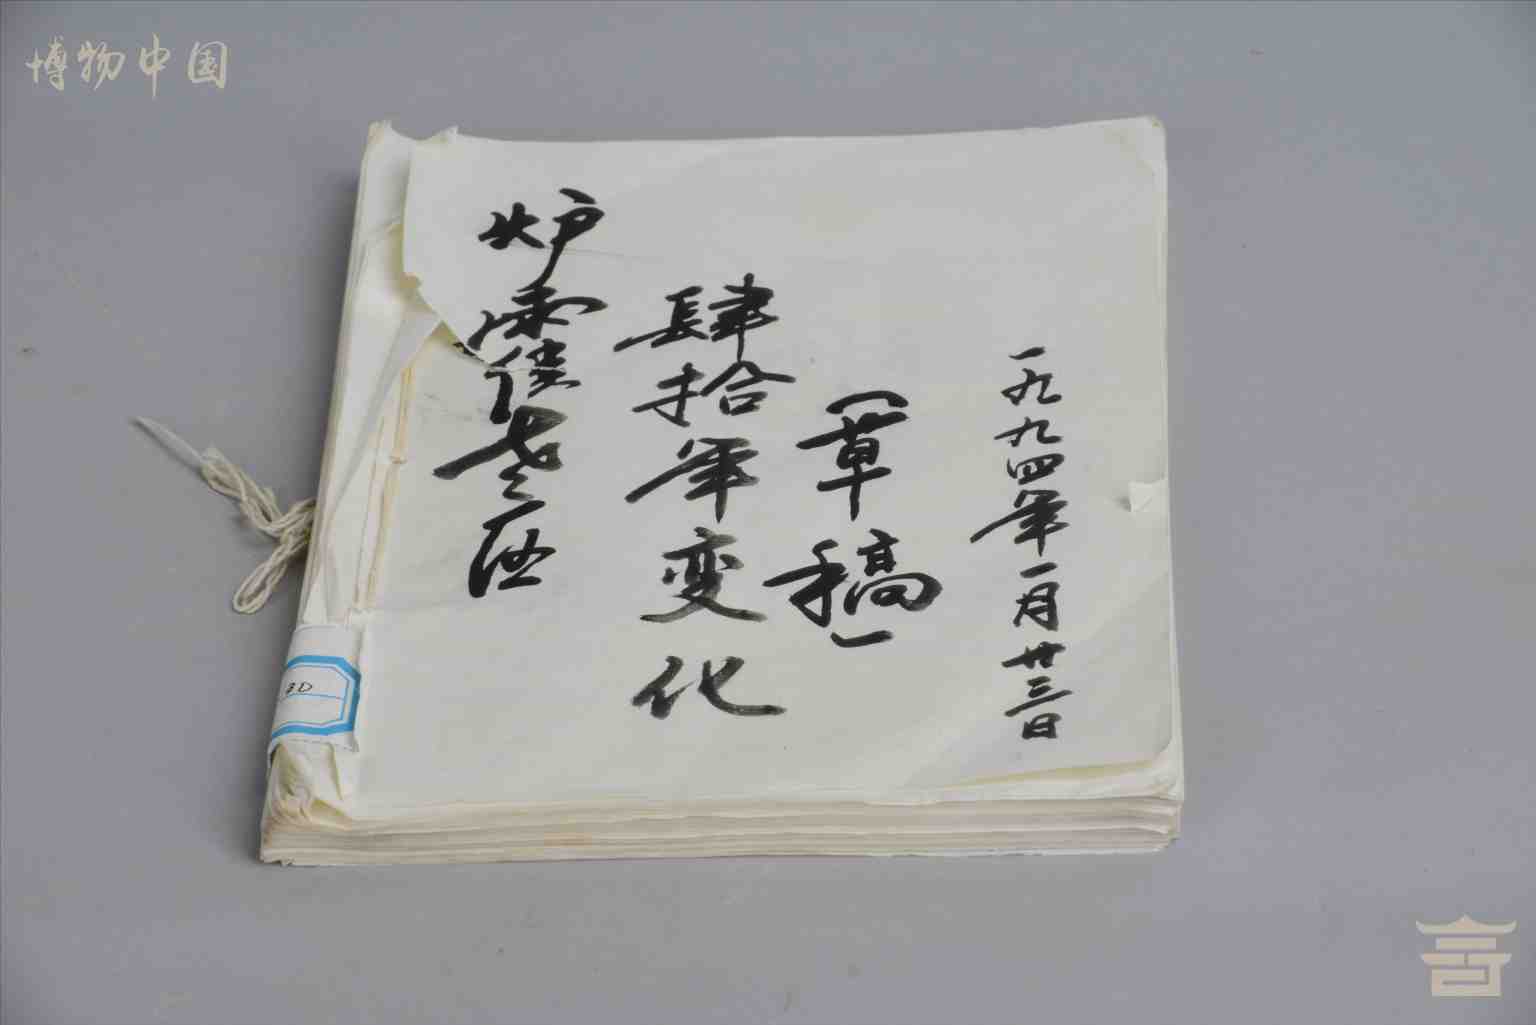 博物中国
炉霍
肆拾年变化
（草稿）
一九九四年一月廿三日